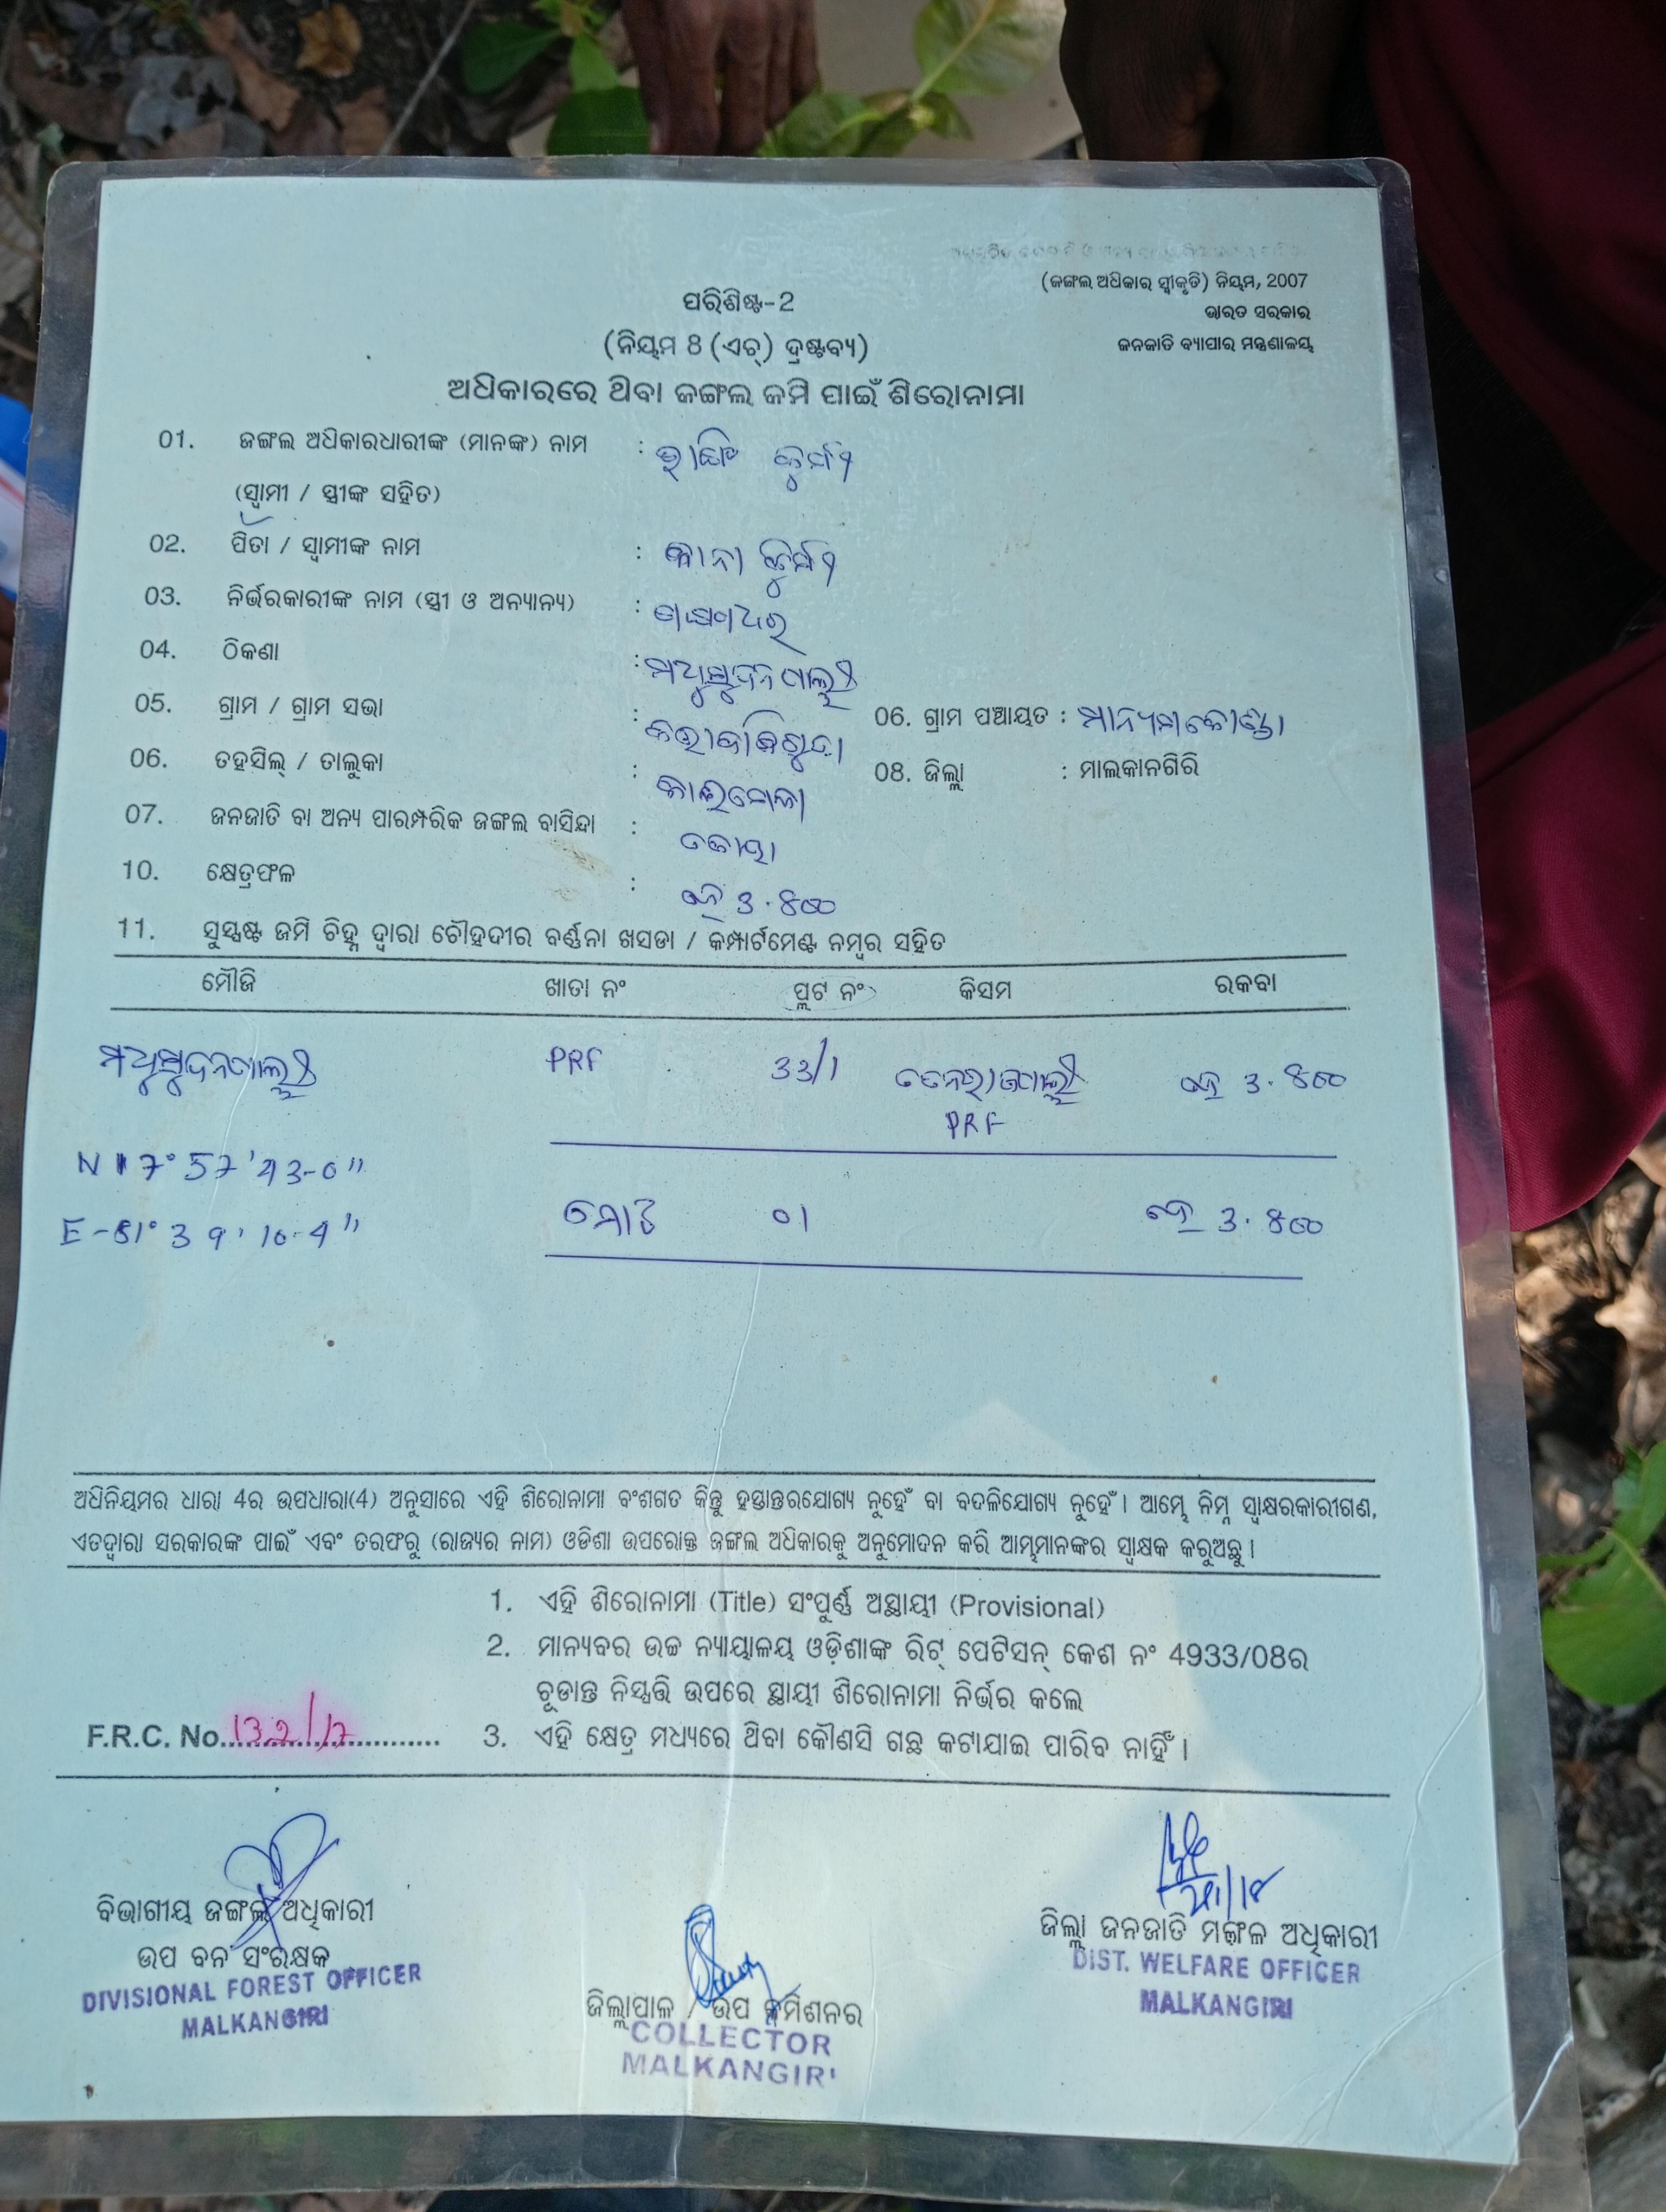 (ଜଙ୍ଗଲ ଅଧିକାର ସ୍ୱୀକୃତି) ନିୟମ, 2007
ଭାରତ ସରକାର
ଜନଜାତି ବ୍ୟାପାର ମନ୍ତ୍ରଣାଳୟ
ପରିଶିଷ୍ଟ-2
(ନିୟମ 8 (ଏଚ୍) ଦ୍ରଷ୍ଟବ୍ୟ)
ଅଧିକାରରେ ଥିବା ଜଙ୍ଗଲ ଜମି ପାଇଁ ଶିରୋନାମା
01. ଜଙ୍ଗଲ ଅଧିକାରଧାରୀଙ୍କ (ମାନଙ୍କ) ନାମ :
(ସ୍ୱାମୀ / ସ୍ତ୍ରୀଙ୍କ ସହିତ)
02. ପିତା / ସ୍ୱାମୀଙ୍କ ନାମ :
03. ନିର୍ଭରକାରୀଙ୍କ ନାମ (ସ୍ତ୍ରୀ ଓ ଅନ୍ୟାନ୍ୟ) :
04. ଠିକଣା : ମଧୁସୁଦନପାଲ୍ଲୀ
05. ଗ୍ରାମ / ଗ୍ରାମ ସଭା : 06. ଗ୍ରାମ ପଞ୍ଚାୟତ : ମାନ୍ୟମକୋଣ୍ଡା
06. ତହସିଲ୍ / ତାଲୁକା : କାଲିମେଳା 08. ଜିଲ୍ଲା : ମାଲକାନଗିରି
07. ଜନଜାତି ବା ଅନ୍ୟ ପାରମ୍ପରିକ ଜଙ୍ଗଲ ବାସିନ୍ଦା : କୋୟା
10. କ୍ଷେତ୍ରଫଳ : ହେ 3.୪୦୦
11. ସୁସ୍ପଷ୍ଟ ଜମି ଚିହ୍ନ ଦ୍ୱାରା ଚୌହଦୀର ବର୍ଣ୍ଣନା ଖସଡା / କମ୍ପାର୍ଟମେଣ୍ଟ ନମ୍ବର ସହିତ
ମୌଜି ଖାତା ନଂ ପ୍ଲଟ ନଂ କିସମ ରକବା
ମଧୁସୁଦନପାଲ୍ଲୀ PRF 33/1 ହେ 3.୪୦୦
PRF
N 17° 57' 43-0"
ମୋଟ 01 ହେ 3.୪୦୦
E-81° 39' 10-4"
ଅଧିନିୟମର ଧାରା 4ର ଉପଧାରା(4) ଅନୁସାରେ ଏହି ଶିରୋନାମା ବଂଶଗତ କିନ୍ତୁ ହସ୍ତାନ୍ତରଯୋଗ୍ୟ ନୁହେଁ ବା ବଦଳିଯୋଗ୍ୟ ନୁହେଁ । ଆମ୍ଭେ ନିମ୍ନ ସ୍ୱାକ୍ଷରକାରୀଗଣ,
ଏତଦ୍ୱାରା ସରକାରଙ୍କ ପାଇଁ ଏବଂ ତରଫରୁ (ରାଜ୍ୟର ନାମ) ଓଡିଶା ଉପରୋକ୍ତ ଜଙ୍ଗଲ ଅଧିକାରକୁ ଅନୁମୋଦନ କରି ଆମ୍ଭମାନଙ୍କର ସ୍ୱାକ୍ଷକ କରୁଅଛୁ ।
1. ଏହି ଶିରୋନାମା (Title) ସଂପୁର୍ଣ୍ଣ ଅସ୍ଥାୟୀ (Provisional)
2. ମାନ୍ୟବର ଉଚ୍ଚ ନ୍ୟାୟାଳୟ ଓଡ଼ିଶାଙ୍କ ରିଟ୍ ପେଟିସନ୍ କେଶ ନଂ 4933/08ର
ଚୂଡାନ୍ତ ନିସ୍ପତ୍ତି ଉପରେ ସ୍ଥାୟୀ ଶିରୋନାମା ନିର୍ଭର କଲେ
F.R.C. No. 132/17
3. ଏହି କ୍ଷେତ୍ର ମଧ୍ୟରେ ଥିବା କୌଣସି ଗଛ କଟାଯାଇ ପାରିବ ନାହିଁ ।
ବିଭାଗୀୟ ଜଙ୍ଗଲ ଅଧିକାରୀ
ଉପ ବନ ସଂରକ୍ଷକ
DIVISIONAL FOREST OFFICER
MALKANGIRI
ଜିଲ୍ଲାପାଳ / ଉପ କମିଶନର
COLLECTOR
MALKANGIRI
ଜିଲ୍ଲା ଜନଜାତି ମଙ୍ଗଳ ଅଧିକାରୀ
DIST. WELFARE OFFICER
MALKANGIRI